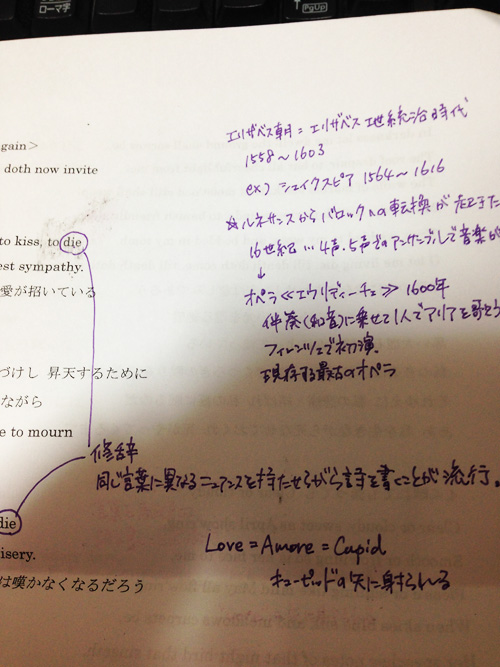 ローマ字
PgUp
gain>
doth now invite
to kiss, to die
est sympathy.
愛が招いている
づけし 昇天するために
ながら
e to mourn
die
isery.
は嘆かなくなるだろう
エリザベス朝=エリザベス1世統治時代
1558〜1603
ex) シェイクスピア 1564〜1616
ルネサンスからバロックへの転換が起きた
16世紀… 4声、5声でのアンサンブルで音楽が
↓
オペラ≪エウリディーチェ≫1600年
伴奏(和音)に乗せて1人でアリアを歌う
フィレンツェで初演。
現存する最古のオペラ
修辞
同じ言葉に異なるニュアンスを持たせながら詩を書くことが流行。
Love=Amore=Cupid
キューピッドの矢に射られる